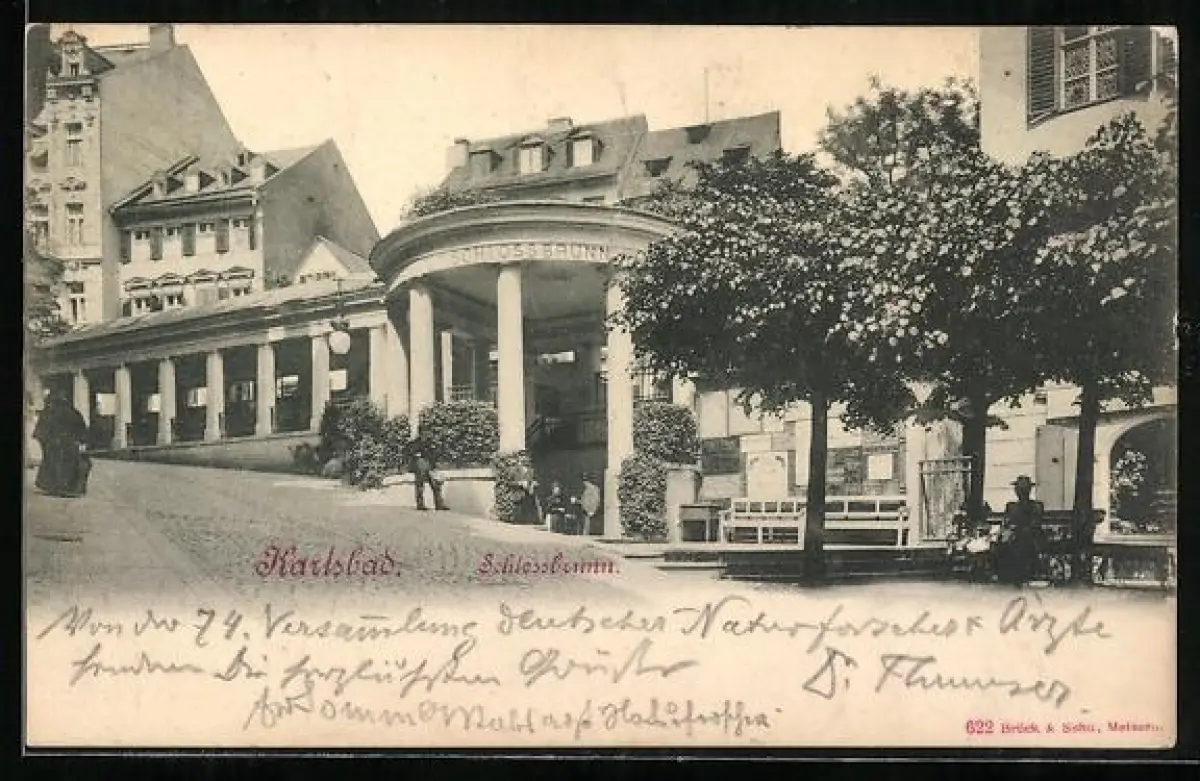 SCHLOSSBRUNN
Karlsbad. Schlossbrunn.
Von der 74. Versammlung deutscher Naturforscher & Ärzte
senden Die herzlichsten Grüße Dr.
622 Brück & Sohn, Meissen.